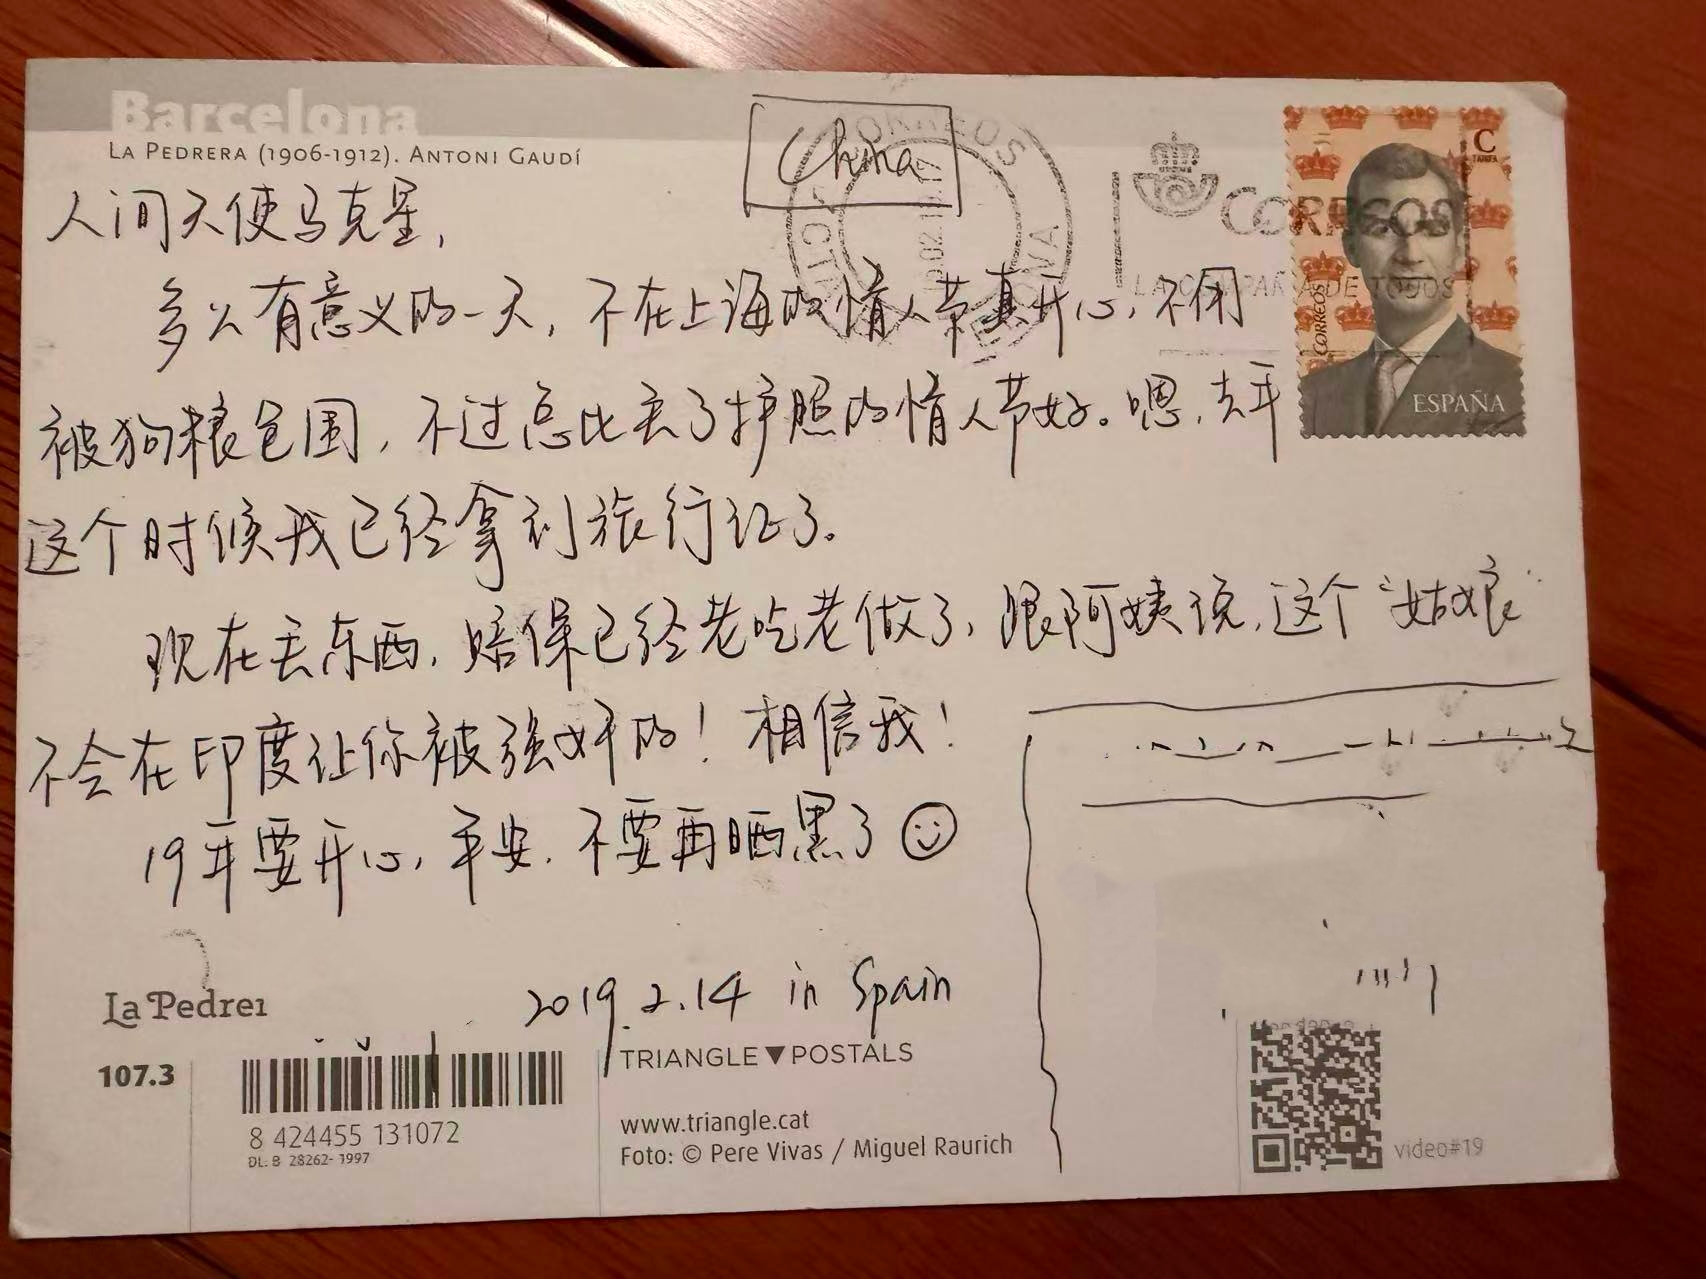 Barcelona
LA PEDRERA (1906-1912). ANTONI GAUDÍ
China
CORREOS
CORREOS
C
TARIFA
CORREOS
ESPAÑA
人间天使马克星，
多么有意义的一天，不在上海的情人节真开心，不用
被狗粮包围，不过总比丢了护照的情人节好。嗯，去年
这个时候我已经拿到旅行证了。
现在丢东西，赔保已经老吃老做了，跟阿姨说，这个“姑娘”
不会在印度让你被强奸的！相信我！
19年要开心，平安，不要再晒黑了
2019.2.14 in Spain
La Pedrer
107.3
8 424455 131072
DL. B 28262-1997
TRIANGLE POSTALS
www.triangle.cat
Foto: © Pere Vivas / Miguel Raurich
video#19